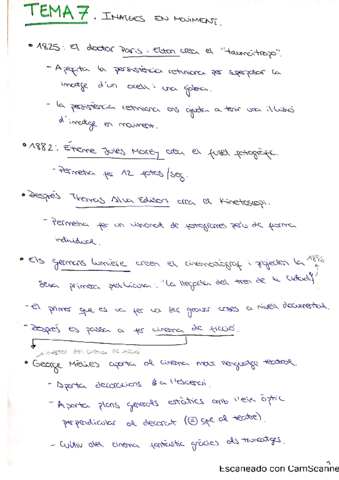 TEMA 7. IMATGES EN MOVIMENT.
• 1825: El doctor Paris i Elton crea el "taumàtrop".
- Aprofita la persistència retiniana per superposar la
imatge d'un ocell i una gàbia.
- La persistència retiniana ens ajuda a tenir una il·lusió
d'imatge en moviment.
• 1882: Étienne Jules Marey crea el fusell fotogràfic.
- Permetia fer 12 fotos/seg.
• Després Thomas Alva Edison crea el Kinetoscopi.
- Permetia fer un visionat de fotogrames però de forma
individual.
• Els germans lumière creen el cinematògraf i projecten la 1896
seva primera pel·lícula: "La llegada del tren de la Ciutat"
- El primer que es va fer va ser gravar coses a nivell documental.
- Després es passa a fer cinema de ficció.
cinema de ficció
• George Méliès aporta al cinema mut llenguatge teatral.
- Aporta decoracions a l'escenari.
- Aporta plans generals estàtics amb l'eix òptic
perpendicular al decorat (2 spe al teatre).
- Cultiu del cinema fantàstic gràcies als trucatges.
Escaneado con CamScanne